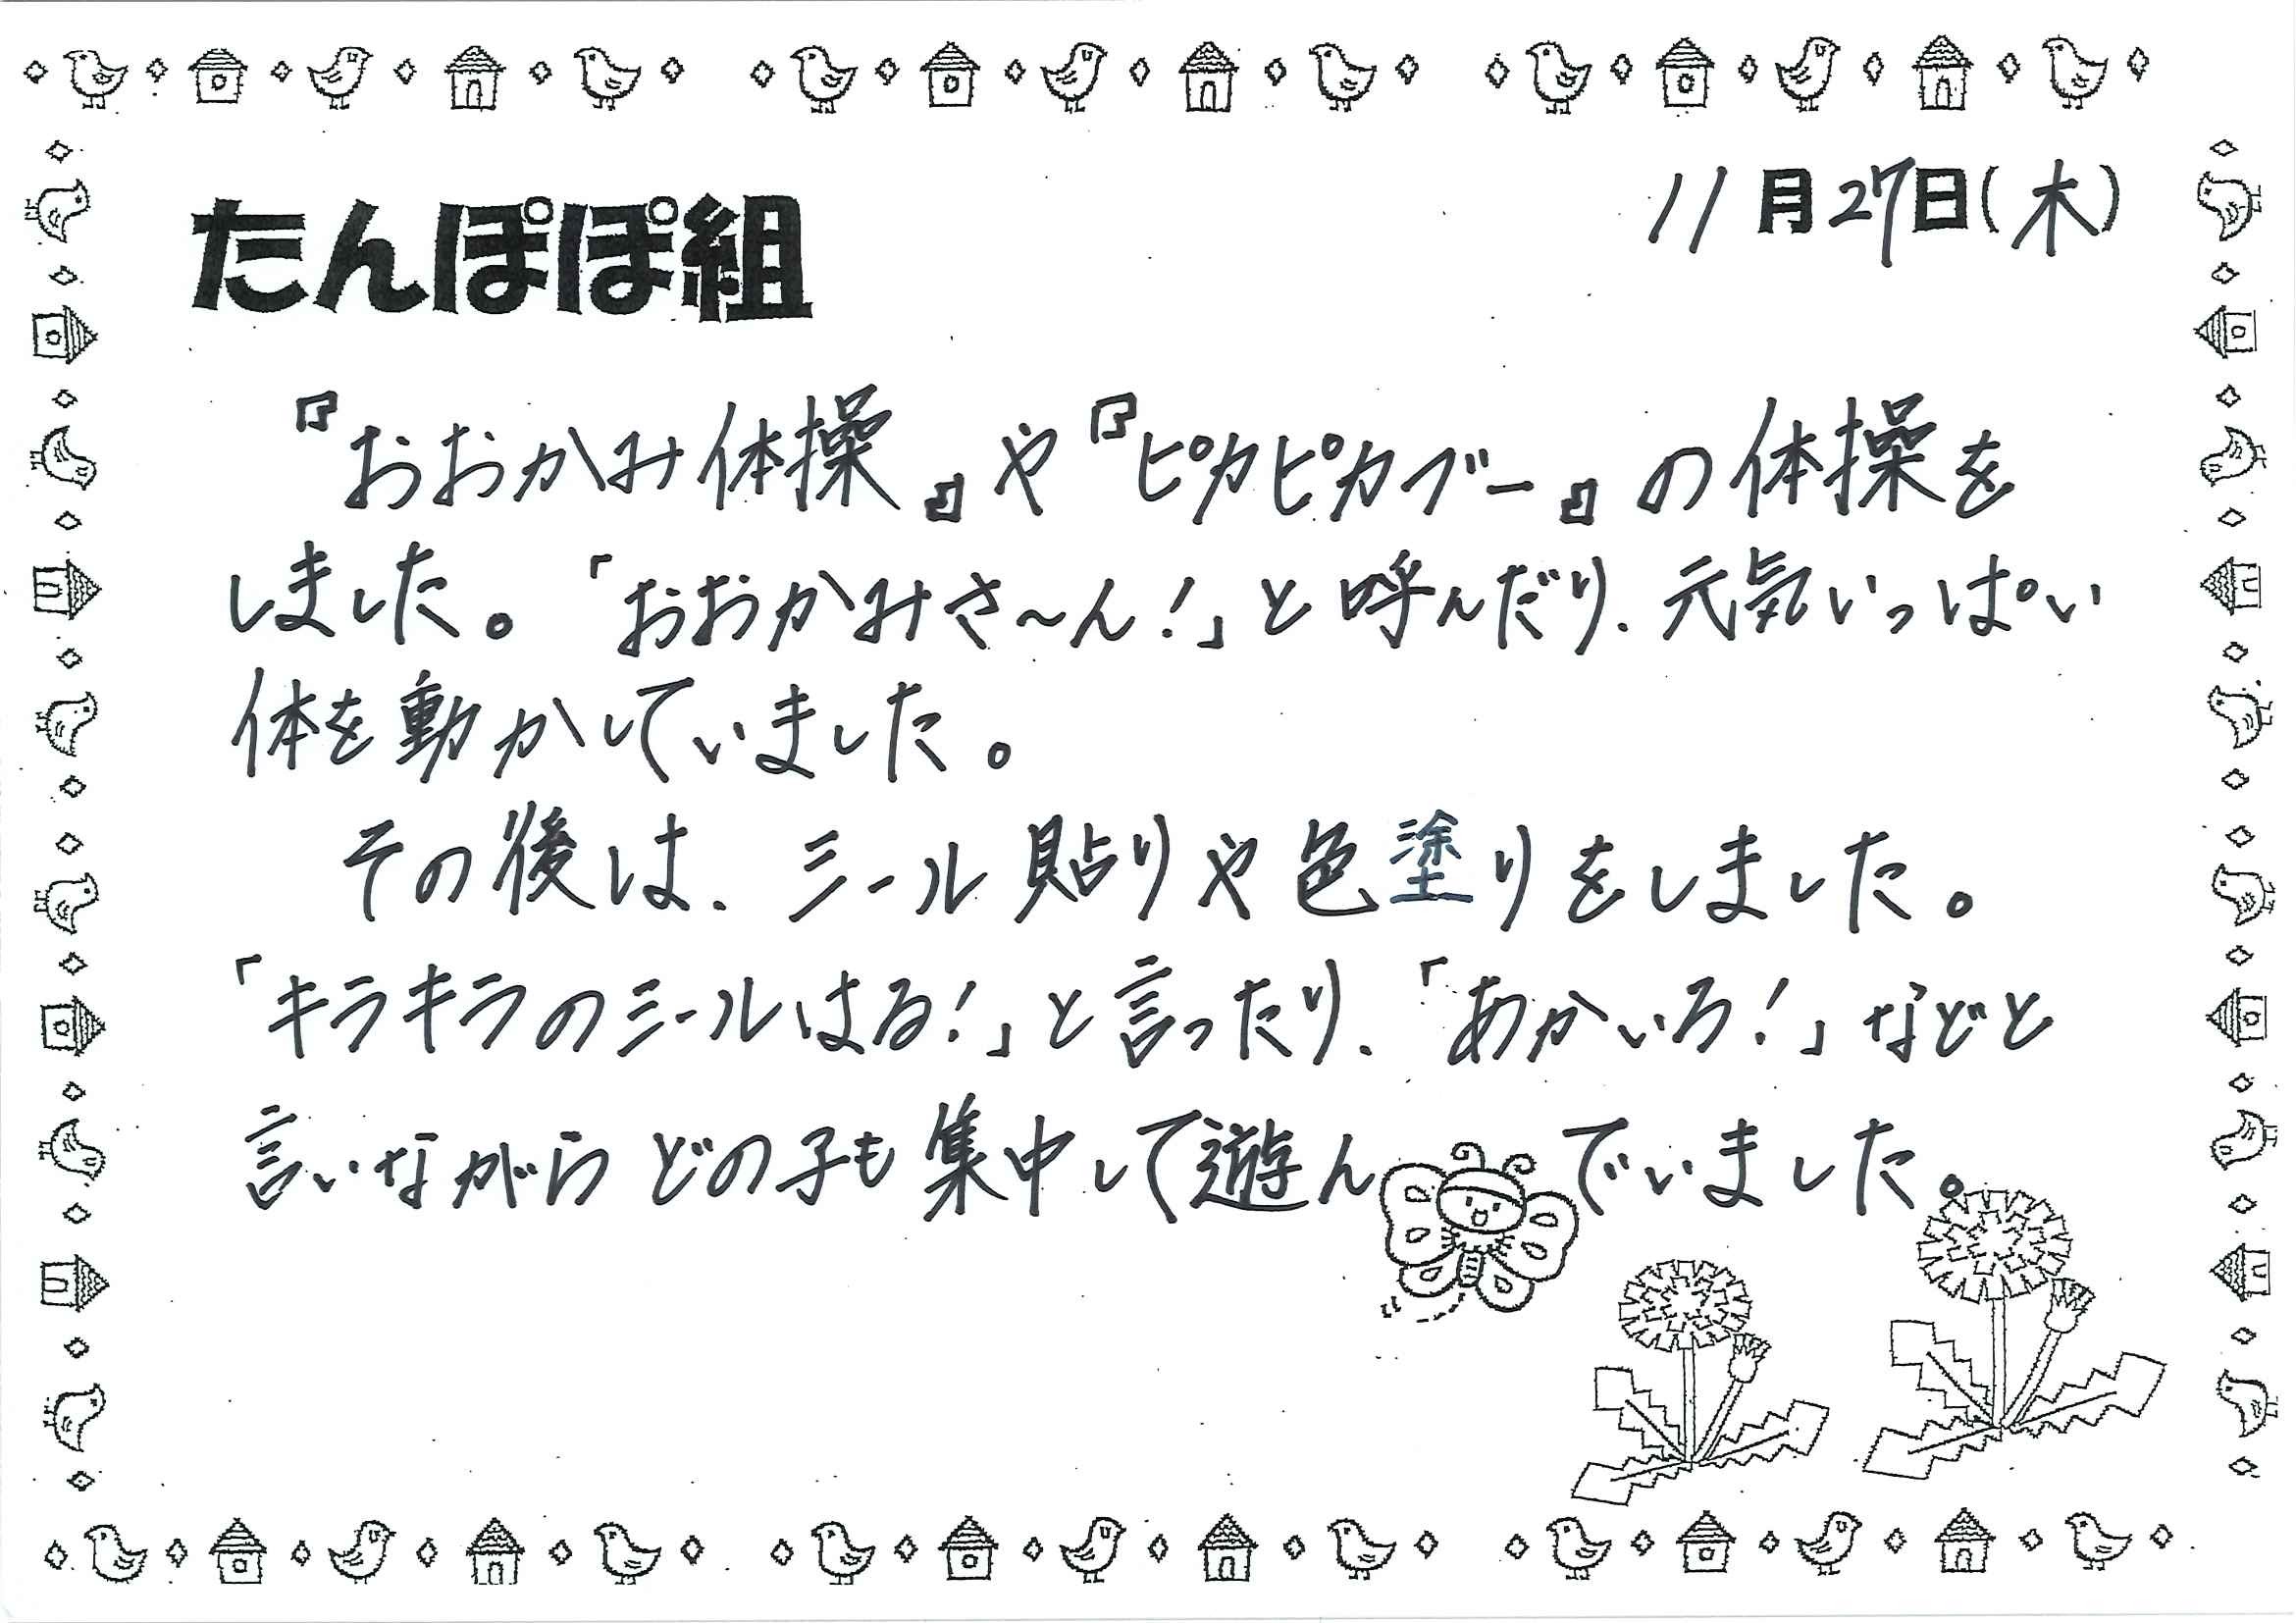 たんぽぽ組
11月27日(木)
『おおかみ体操』や『ピカピカブー』の体操を
しました。「おおかみさ〜ん!」と呼んだり、元気いっぱい
体を動かしていました。
その後は、シール貼りや色塗りをしました。
「キラキラのシールはる!」と言ったり、「あかいろ!」などと
言いながらどの子も集中して遊んでいました。